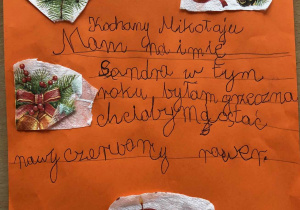 Kochany Mikołaju
Mam na imię
Sandra w tym
roku byłam grzeczna
chciałbym dostać
nowy czerwony rower.